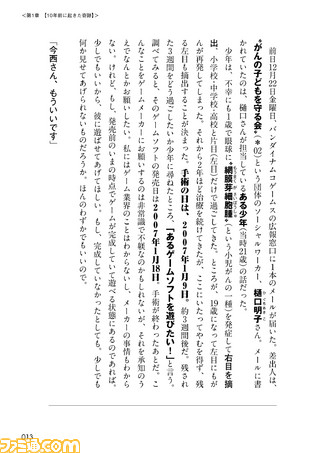 <第1章 【10年前に起きた奇跡】
前日12月22日金曜日、バンダイナムコゲームスの広報窓口に1本のメールが届いた。差出人は、
“がんの子どもを守る会”（＊02）という団体のソーシャルワーカー・樋口明子さん。メールに書
かれていたのは、樋口さんが担当しているある少年（当時21歳）の話だった。
少年は、不幸にも1歳で眼球に“網膜芽細胞腫”（という小児がんの一種）を発症して右目を摘
出。小学校・中学校・高校と片目（左目）だけで過ごしてきた。ところが、19歳になって左目にも
がんが再発してしまった。それから2年ほど治療を続けてきたが、ここにいたってやむを得ず、残
る左目も摘出することが決まった。手術の日は、2007年1月9日。約3週間後だ。残され
た3週間をどう過ごしたいか少年に尋ねたところ、「あるゲームソフトを遊びたい！」と言う。
調べてみると、そのゲームソフトの発売日は2007年1月18日。手術が終わったあとだ。こ
んなことをゲームメーカーにお願いするのは非常識で不躾なのかもしれないが、それを承知のう
えでなんとかお願いしたい。私にはゲーム業界のことはわからないし、メーカーの事情もわから
ない。けれど、もし、発売前のいまの時点でゲームが完成していて遊べる状態にあるのであれば、
少しでもいいから、彼に遊ばせてあげてほしい。もし、完成していなかったとしても、少しでも
何か見せてあげられないものだろうか。ほんのわずかでもいいので。
「今西さん、もういいです」
013
ファミ通.com